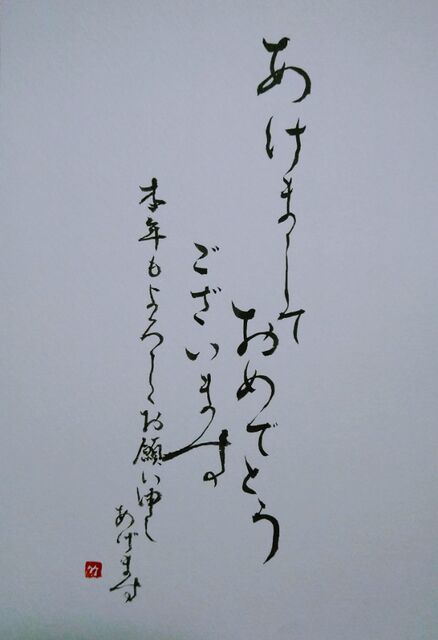 あけまして
おめでとう
ございます
本年もよろしくお願い申し
あげます
竹